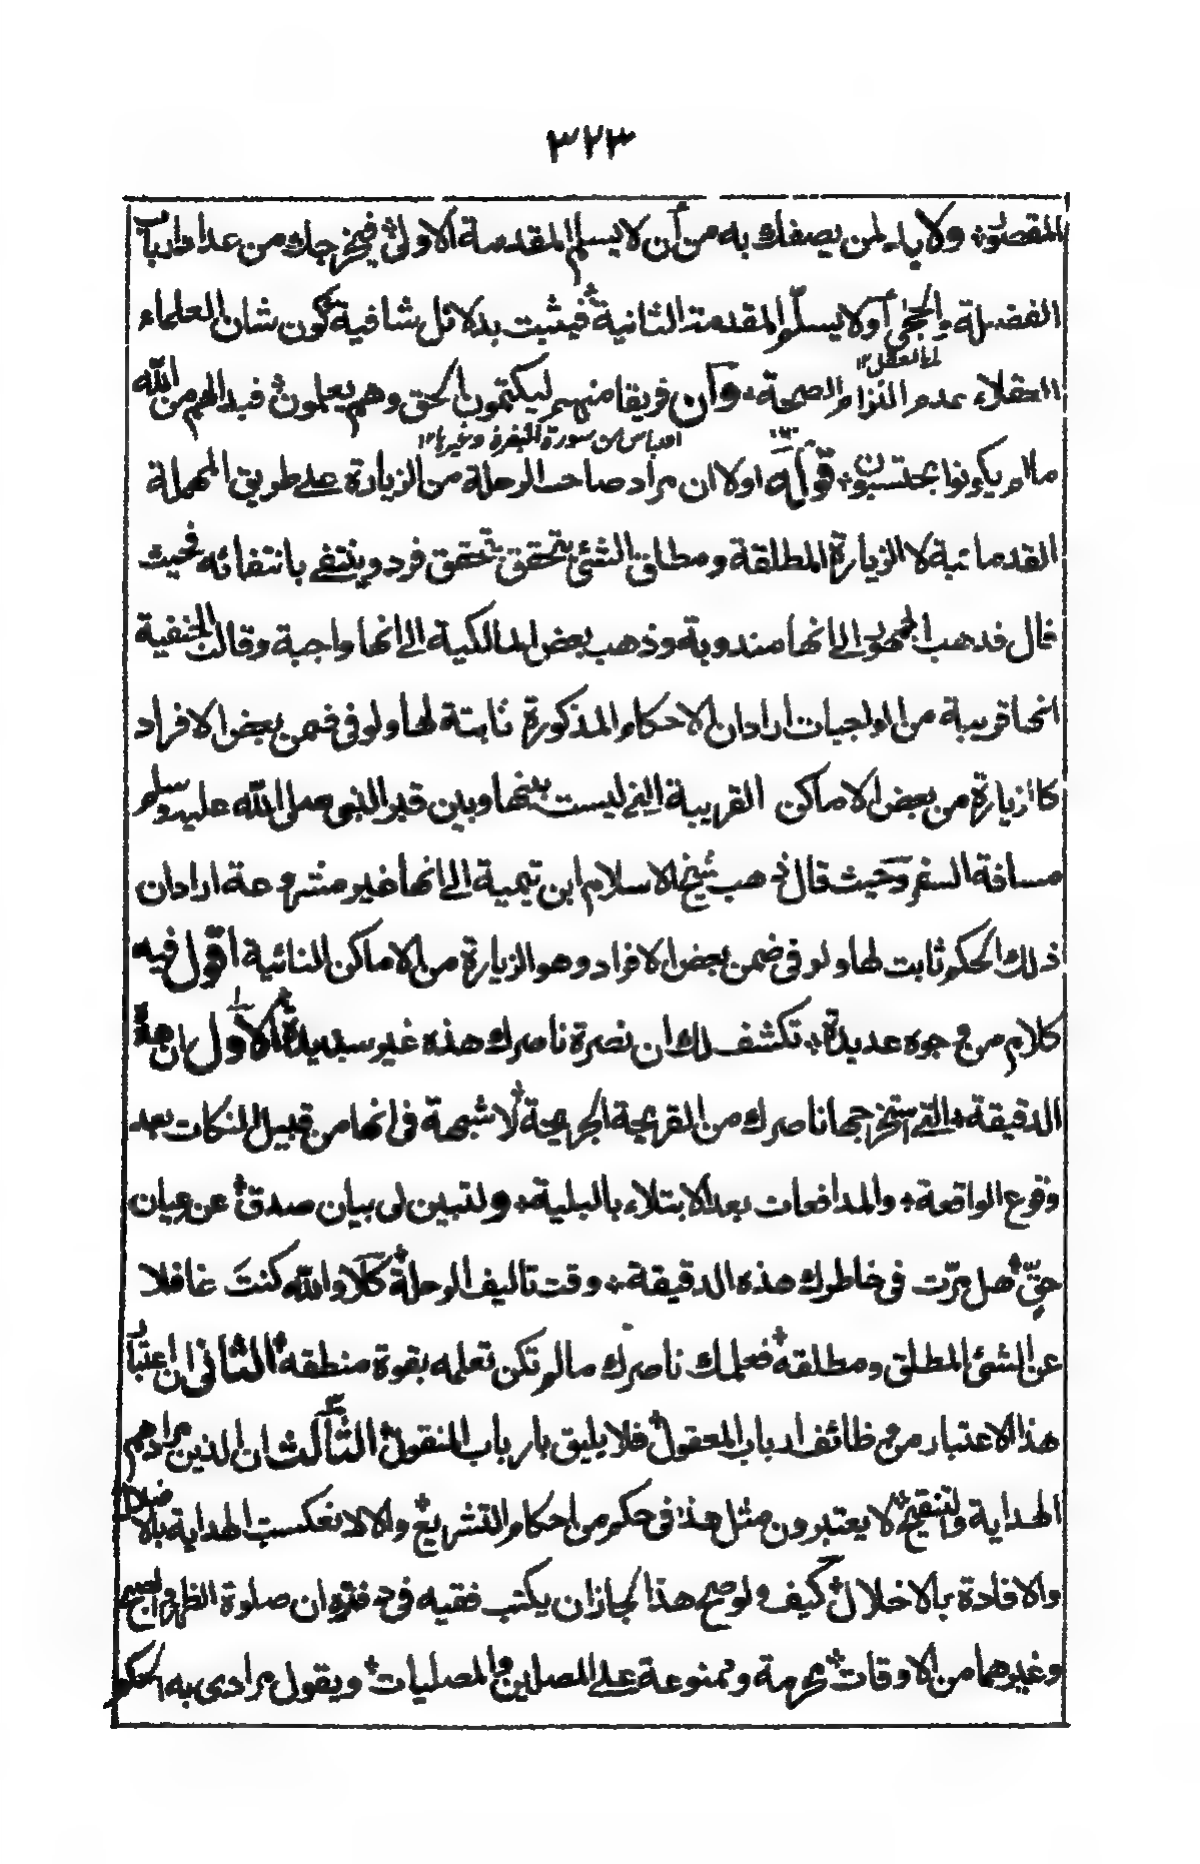 ٣٢٣
المقصود ولا بد لمن يصفك به من أن لا يسلم المقدمة الاولى فيخرجك من عداد ارباب
الفضيلة والحجى أولا يسلّم المقدمة الثانية فيثبت بدلائل شافية كون شان العلماء
اى العقل ١٢
العقلاء عدم التزام الصحة وان فريقا منهم ليكتمون الحق وهم يعلمون فبدا لهم من الله
اقتباس من سورة البقرة وغيرها ١٢
مالم يكونوا يحتسبون قوله اولا ان مراد صاحب الرحلة من الزيارة على طريق المهملة
القدمائية لا الزيارة المطلقة ومطلق الشئ يتحقق بتحقق فرد وينتفى بانتفائه فحيث
قال فذهب الجمهور الى انها مندوبة وذهب بعض المالكية الى انها واجبة وقالت الحنفية
انها قريبة من الواجبات اراد ان الاحكام المذكورة ثابتة لها ولو فى ضمن بعض الافراد
كالزيارة من بعض الاماكن القريبة التى ليست بينها وبين قبر النبى صلى الله عليه وسلم
مسافة السفر وحيث قال ذهب شيخ الاسلام ابن تيمية الى انها غير مشروعة اراد ان
ذلك الحكم ثابت لها ولو فى ضمن بعض الافراد وهو الزيارة من الاماكن النائية اقول فيه
كلام من وجوه عديدة تكشف لك ان نصرة ناصرك هذه غير سديدة الاول ان هذه
الدقيقة التى استخرجها ناصرك من القريحة الجريحة لا شبهة فى انها من قبيل النكات بعد
وقوع الواقعة والمدافعات بعد الابتلاء بالبلية ولتبين لى بيان صدق عن عيان
حتّى هل مرّت فى خاطرك هذه الدقيقة وقت تاليف الرحلة كلّا والله كنتَ غافلا
عن الشئ المطلق ومطلقه فعلمك ناصرك مالم تكن تعلمه بقوة منطقه الثانى ان اعتبار
هذا الاعتبار من وظائف ارباب المعقول فلا يليق بارباب المنقول الثالث ان الذين مرادهم
الهداية والتنقيح لا يعتبرون مثل هذا فى حكم من احكام التشريع والا لانعكست الهداية بالاضلال
والافادة بالاخلال كيف ولو صح هذا لجاز ان يكتب فقيه فى دفتره ان صلوة الظهر والصبح
وغيرهما من الاوقات محرمة وممنوعة على المصلين والمصليات ويقول مرادى به الحكم